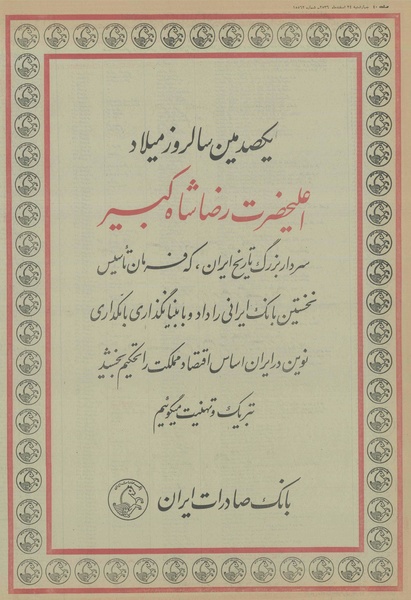 یکصدمین سالروز میلاد
اعلیحضرت رضا شاه کبیر
سردار بزرگ تاریخ ایران، که فرمان تأسیس
نخستین بانک ایرانی را داد و با بنیانگذاری بانکداری
نوین در ایران اساس اقتصاد مملکت را تحکیم بخشید
تبریک و تهنیت میگوئیم
بانک صادرات ایران